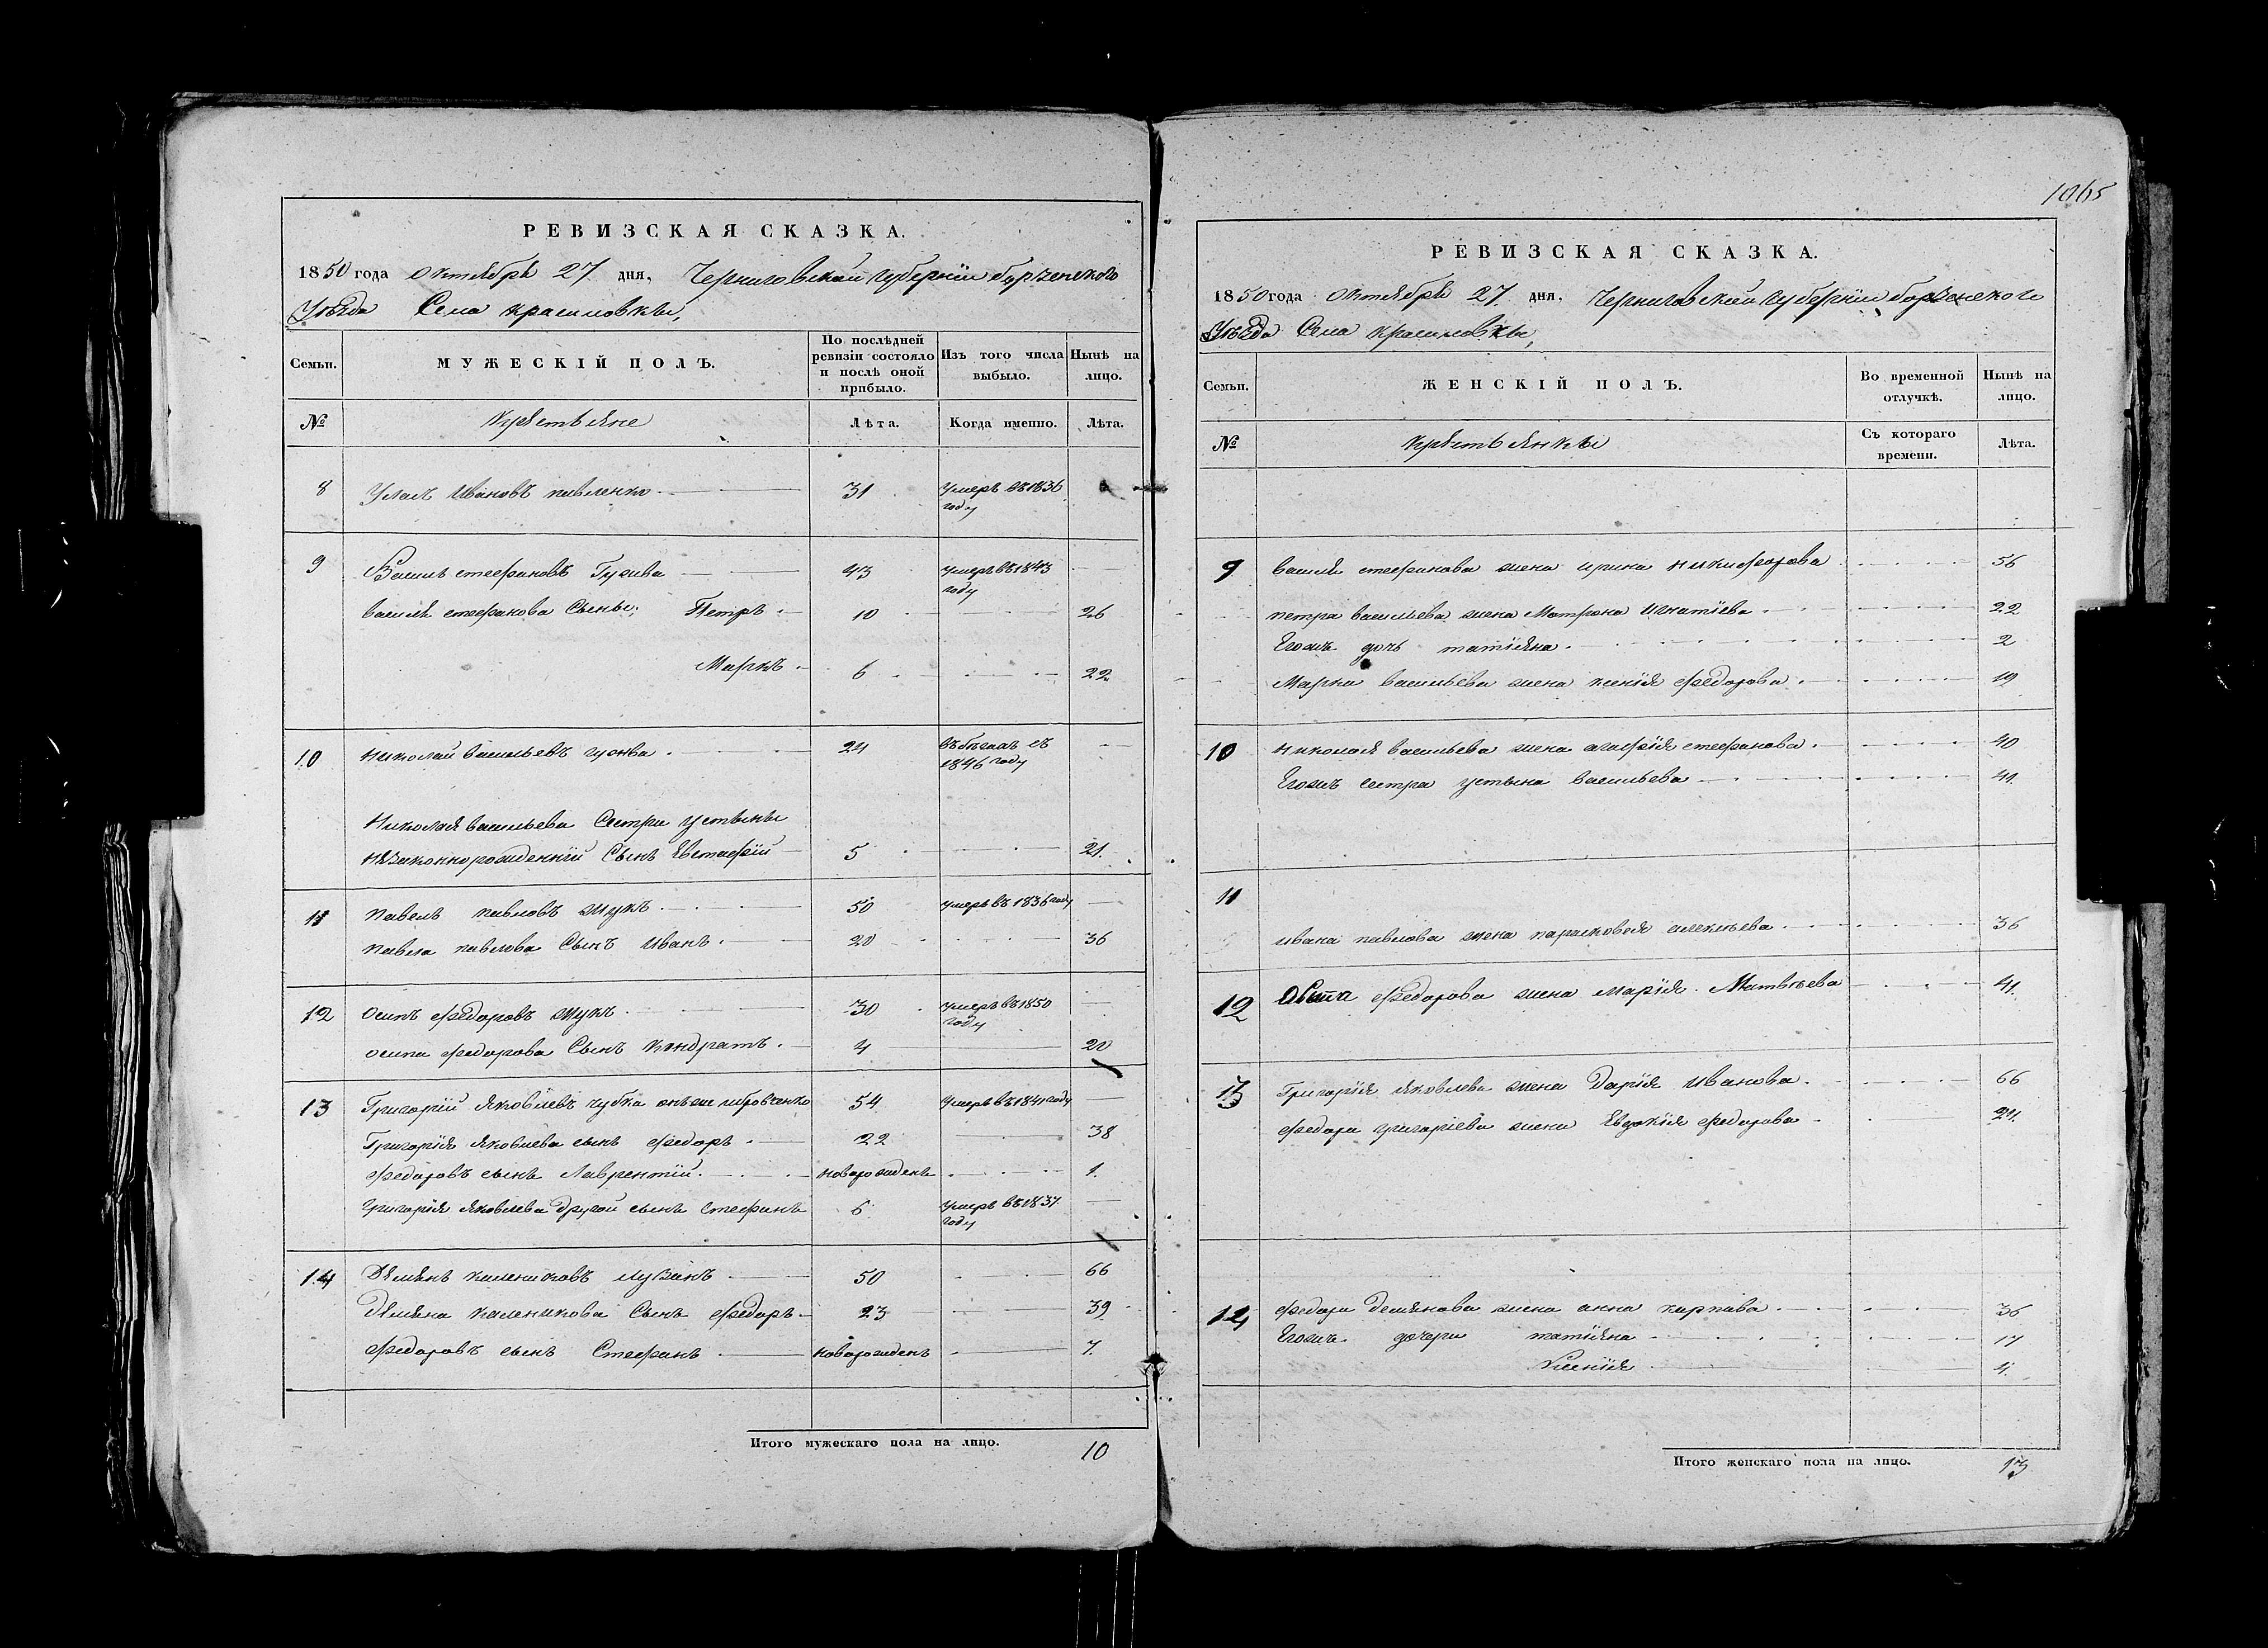 РЕВИЗСКАЯ СКАЗКА.
1850 года Октября 27 дня, Черниговской губернии борзенского
Уѣзда Села
Семьи.
МУЖЕСКІЙ ПОЛЪ.
По послѣдней ревизіи состояло и послѣ оной прибыло.
Изъ того числа выбыло.
Нынѣ на лицо.
№
Крѣстьяне
Лѣта.
Когда именно.
Лѣта.
8 Ивановъ павленко 31 Умеръ въ 1836 году
9 Василь стефановъ Гузива 43 умеръ въ 1843 году
василя стефанова Сыны: Петръ 10 26
Маркъ 6 22
10 николай васильевъ 24 въ бѣгахъ съ 1846 году
Николая васильева Сестри устыны
незаконнорожденній Сынъ Евстафій 5 21.
11 павелъ павловъ жукъ 50 умеръ въ 1836 году
павла павлова Сынъ иванъ 20 36
12 осипъ федоровъ жукъ 30 Умеръ въ 1850 году
осипа федорова Сынъ кондратъ 4 20
13 Григорій яковлевъ чубка онъже 54 Умеръ въ 1841 году
Григорія яковлева сынъ федоръ 22 38
федоровъ сынъ Лаврентій новорожденъ 1.
григорія яковлева другой сынъ Стефанъ 6 Умеръ въ 1837 году
14 Дѣмянъ калениковъ лузанъ 50 66
дѣмяна каленикова Сынъ федоръ 23 39
федоровъ сынъ Стефанъ новорожденъ 7.
Итого мужескаго пола на лицо. 10
1065
РЕВИЗСКАЯ СКАЗКА.
1850 года Октября 27 дня, Черниговской губернии борзенского
Уѣзда Села
Семьи.
ЖЕНСКІЙ ПОЛЪ.
Во временной отлучкѣ.
Нынѣ на лицо.
№
крѣстьянки
Съ котораго времени.
Лѣта.
9 василя стефанова жена ирина никифорова 56
петра васильева жена Матрона игнатіева 22
Егожъ дочь татіяна 2
Марка васильева жена ксенія федорова 19
10 николая васильева жена агафія стефанова 40
Егожъ сестра устына васильева 41.
11
ивана павлова жена парасковея алексѣева 36
12 Осипа федорова жена марія Матвѣева 41.
13 Григорія яковлева жена Дарія иванова 66
федора григоріева жена Евдокія федорова 21.
14 федора демянова жена анна карпова 36
Егожъ дочери татіяна 17
Ксенія 4.
Итого женскаго пола на лицо. 13